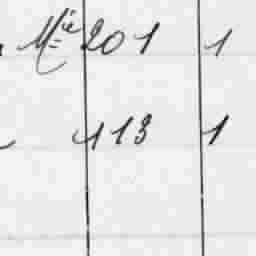 Mie 201 1
113 1